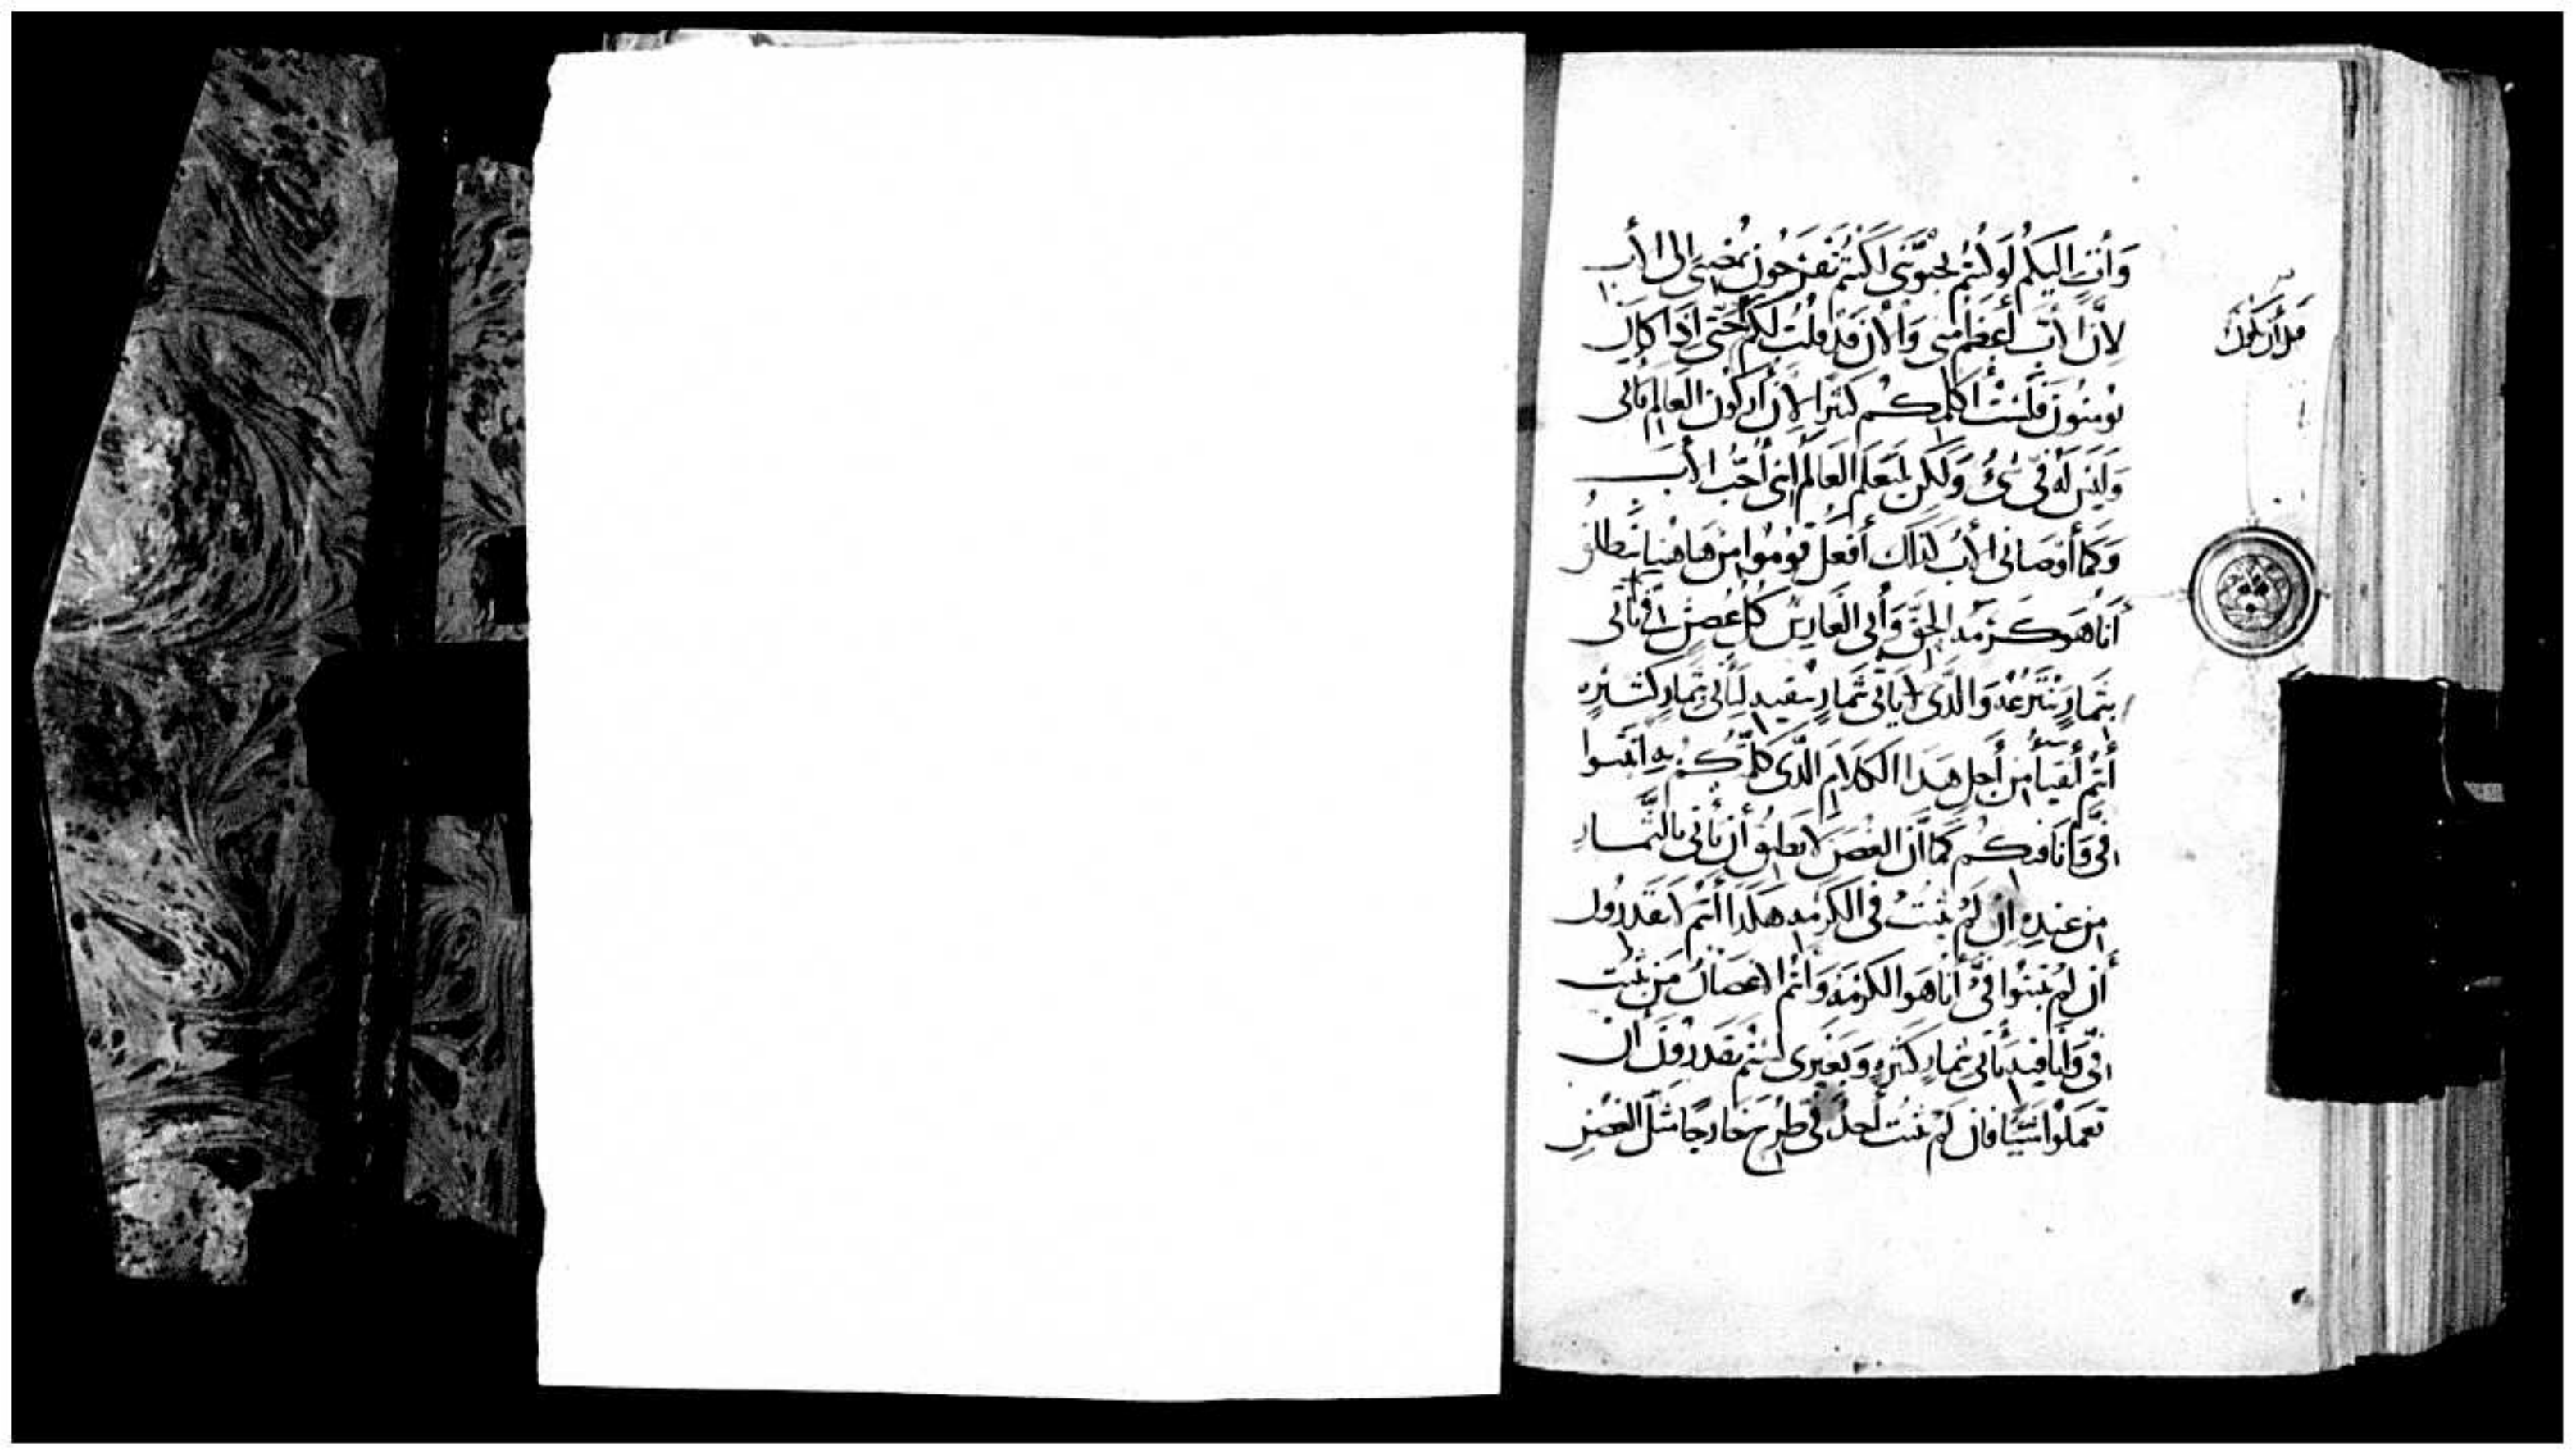 وَأتِ اليكم لَو كنتُم تحبّوني لكنتم تفرَحُون بمُضيي الى الأب
لأنّ الأب أعظم مني وَالأن قد قلت لكم حتى اذا كان
تومنون فلست أكلمكم كثيرًا لأن أركون العالم يأتي
وَليسَ له فيّ شئ وَلكن ليَعلم العَالم انى أحبّ الأب
وَكما أوصاني الأب كذلك أفعل قومُوا من هاهنا ننطلق
أناهوَ كرمة الحق وَأبي الحارس كل غصن فيّ لا يأتي
بثمار ينتزعه وَالذي يأتي بثمار ينقيه ليأتي بثمار كثيره
أنتم أنقيا من أجل هَذا الكلام الذي كلمتكم به اثبتوا
فيّ وَأنا فيكم كما أن الغصن لا يطيق أن يأتي بالثمار
من عنده ان لم يثبت في الكرمه هكذا أنتم لا تقدرون
أن لم تثبتوا فيّ أنا هو الكرمه وَأنتم الأغصان من يثبت
فيّ وَأنا فيه يأتي بثمار كثيره وَبغيري لستم تقدرون أن
تعملوا شيئا فان لم يثبت أحد فيّ طرح خارجا مثل الغصن
قبل أن يكون